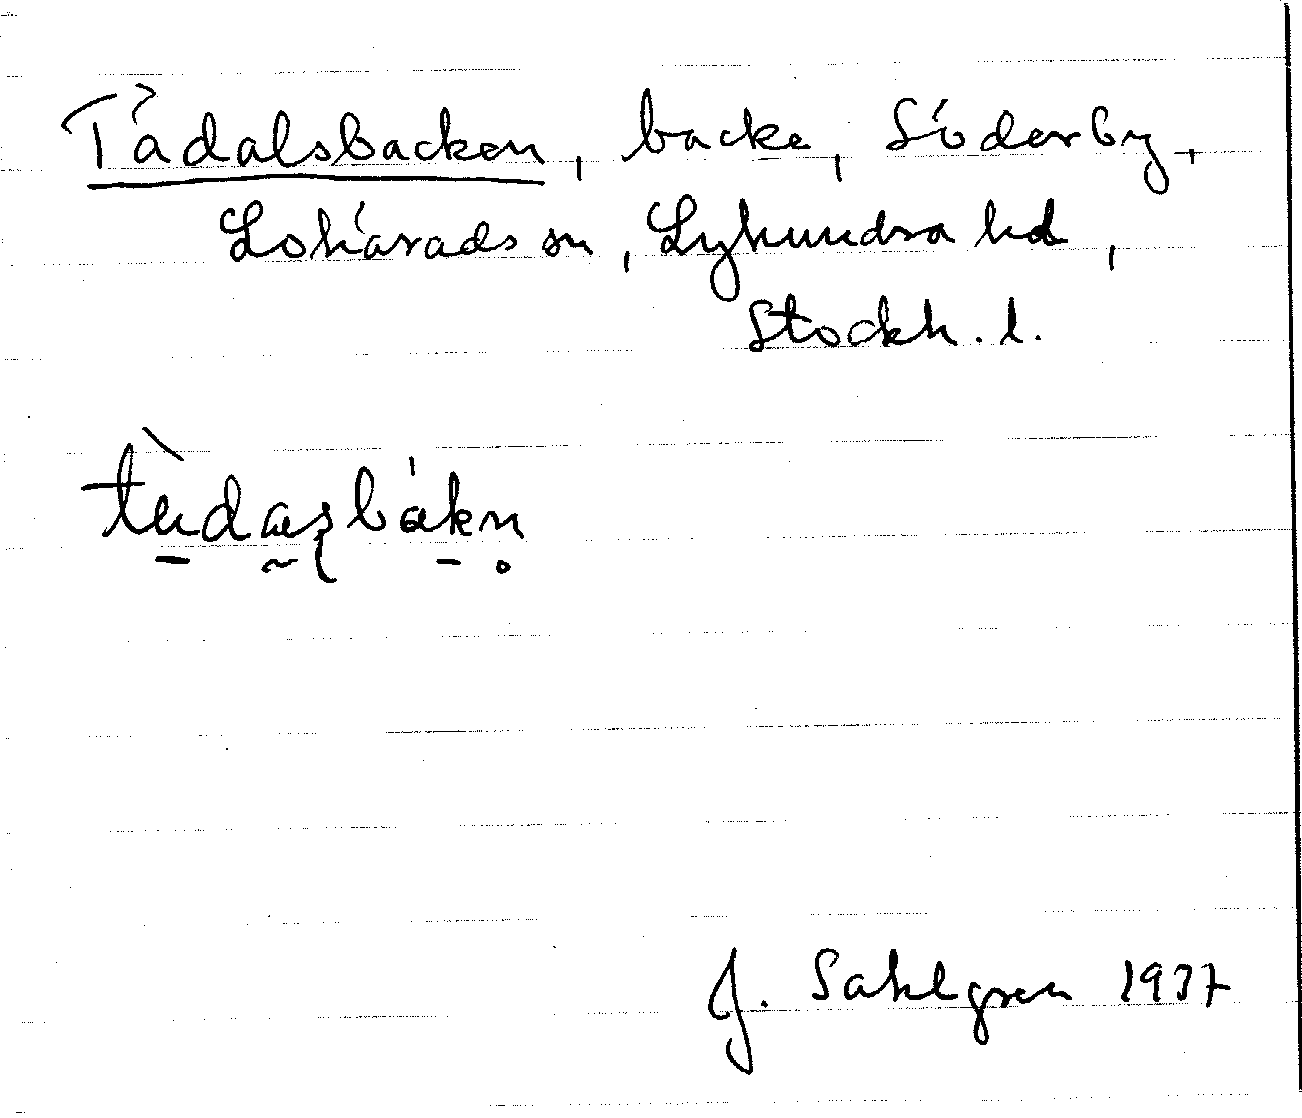 Tådalsbacken, backe, Söderby,
Lohärads sn, Lyhundra hd,
Stockh. l.
J. Sahlgren 1937